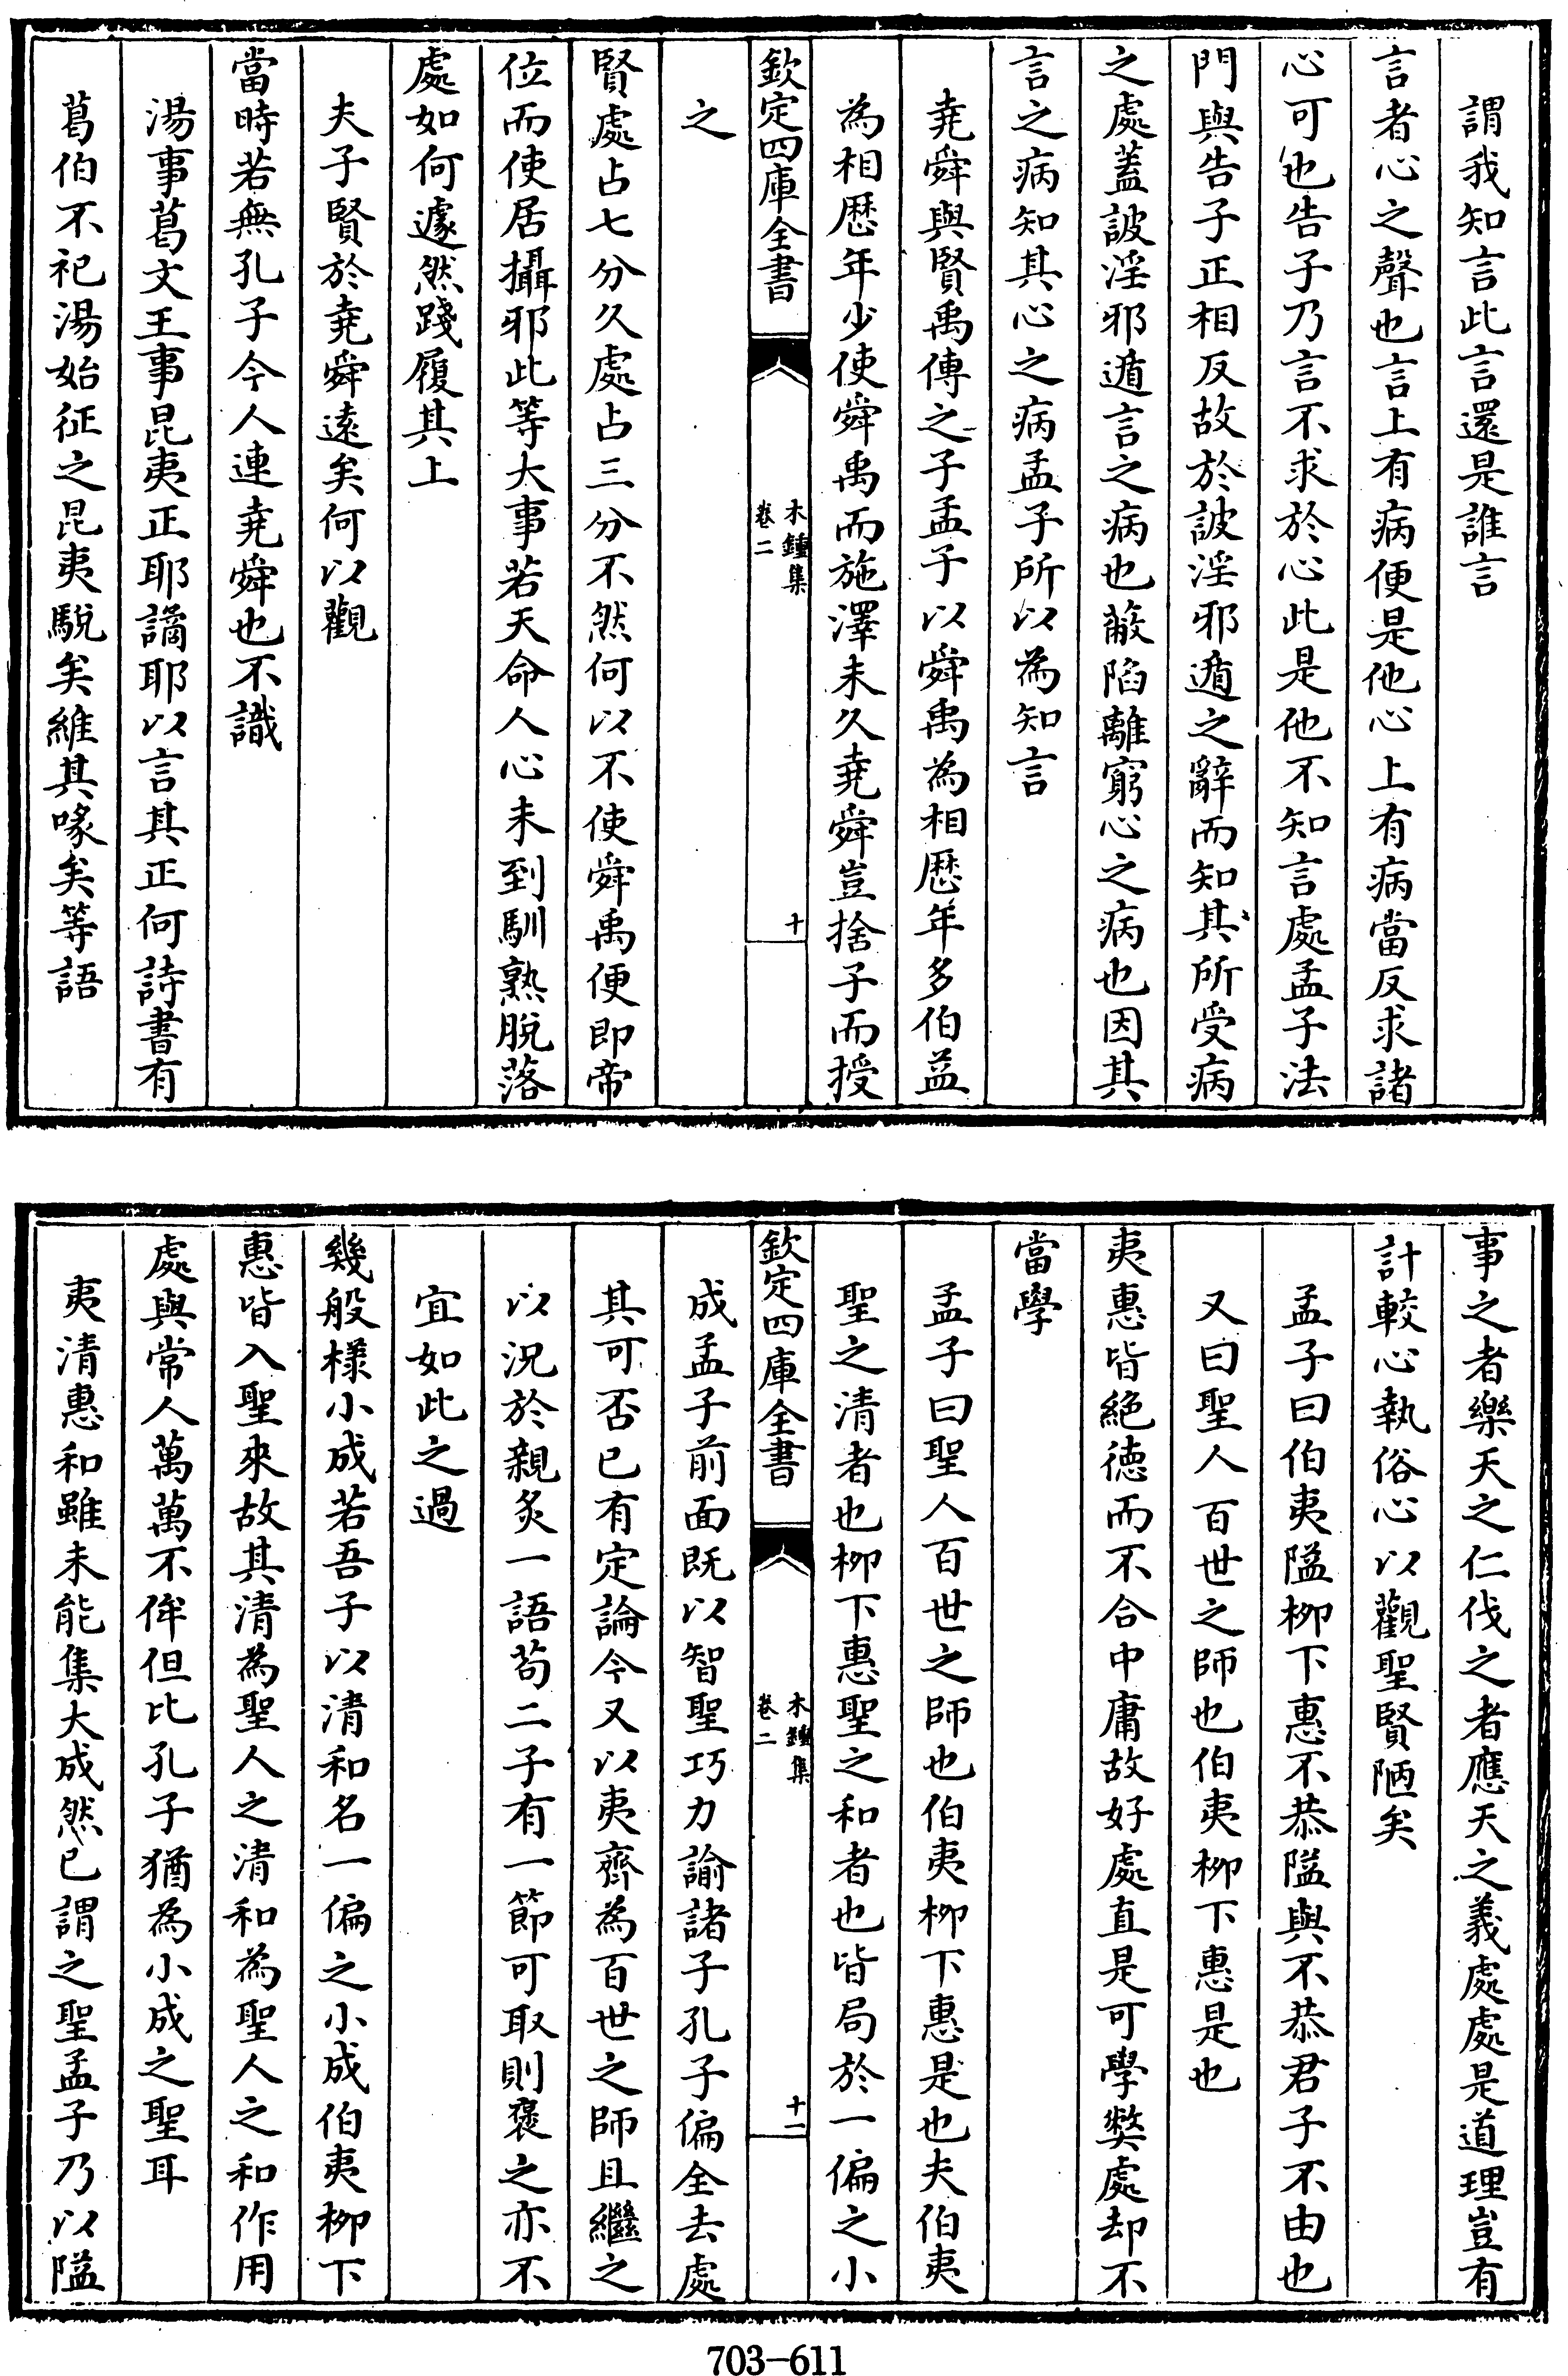 謂我知言此言還是誰言
言者心之聲也言上有病便是他心上有病當反求諸
心可也告子乃言不求於心此是他不知言處孟子法
門與告子正相反故於詖淫邪遁之辭而知其所受病
之處蓋詖淫邪遁言之病也蔽陷離窮心之病也因其
言之病知其心之病孟子所以為知言
堯舜與賢禹傳之子孟子以舜禹為相歴年多伯益
為相歴年少使舜禹而施澤未久堯舜豈捨子而授
欽定四庫全書
木鍾集
卷二
十
之
賢處占七分久處占三分不然何以不使舜禹便即帝
位而使居攝邪此等大事若天命人心未到馴熟脫落
處如何遽然踐履其上
夫子賢於堯舜遠矣何以觀
當時若無孔子今人連堯舜也不識
湯事葛文王事昆夷正耶譎耶以言其正何詩書有
葛伯不祀湯始征之昆夷駾矣維其喙矣等語
事之者樂天之仁伐之者應天之義處處是道理豈有
計較心執俗心以觀聖賢陋矣
孟子曰伯夷隘柳下惠不恭隘與不恭君子不由也
又曰聖人百世之師也伯夷柳下惠是也
夷惠皆絕德而不合中庸故好處直是可學弊處却不
當學
孟子曰聖人百世之師也伯夷柳下惠是也夫伯夷
聖之清者也柳下惠聖之和者也皆局於一偏之小
欽定四庫全書
木鍾集
卷二
十一
成孟子前面既以智聖巧力諭諸子孔子偏全去處
其可否已有定論今又以夷齊為百世之師且繼之
以況於親炙一語苟二子有一節可取則褒之亦不
宜如此之過
幾般様小成若吾子以清和名一偏之小成伯夷柳下
惠皆入聖來故其清為聖人之清和為聖人之和作用
處與常人萬萬不侔但比孔子猶為小成之聖耳
夷清惠和雖未能集大成然已謂之聖孟子乃以隘
703-611